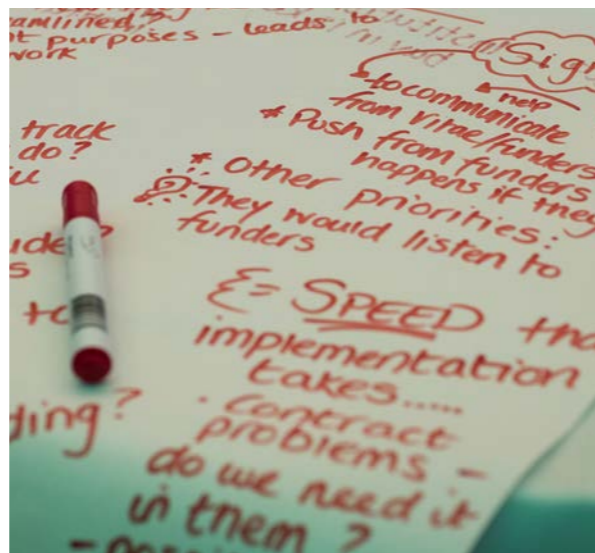 amlined?
t purposes - leads to
work
Sign
to communicate
help
from vitae/funders
* Push from funders
happens if they
track
do?
* Other priorities:
They would listen to
funders
ude?
s
to
SPEED tha
implementation
takes.....
ding?
· contract
problems -
do we need it
in them?